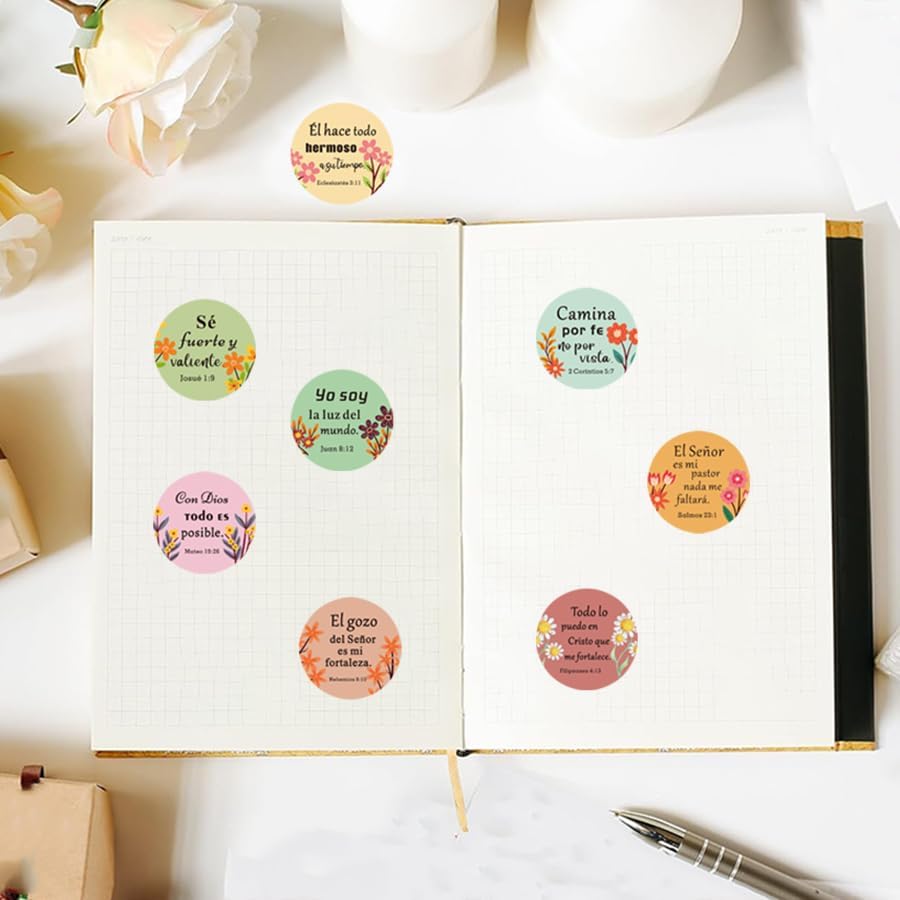 Él hace todo
hermoso
a su tiempo.
Eclesiastés 3:11
Sé
fuerte y
valiente.
Josué 1:9
Yo soy
la luz del
mundo.
Juan 8:12
Con Dios
TODO ES
posible.
Mateo 19:26
El gozo
del Señor
es mi
fortaleza.
Nehemías 8:10
Camina
por fe
no por
vista.
2 Corintios 5:7
El Señor
es mi
pastor
nada me
faltará.
Salmos 23:1
Todo lo
puedo en
Cristo que
me fortalece.
Filipenses 4:13